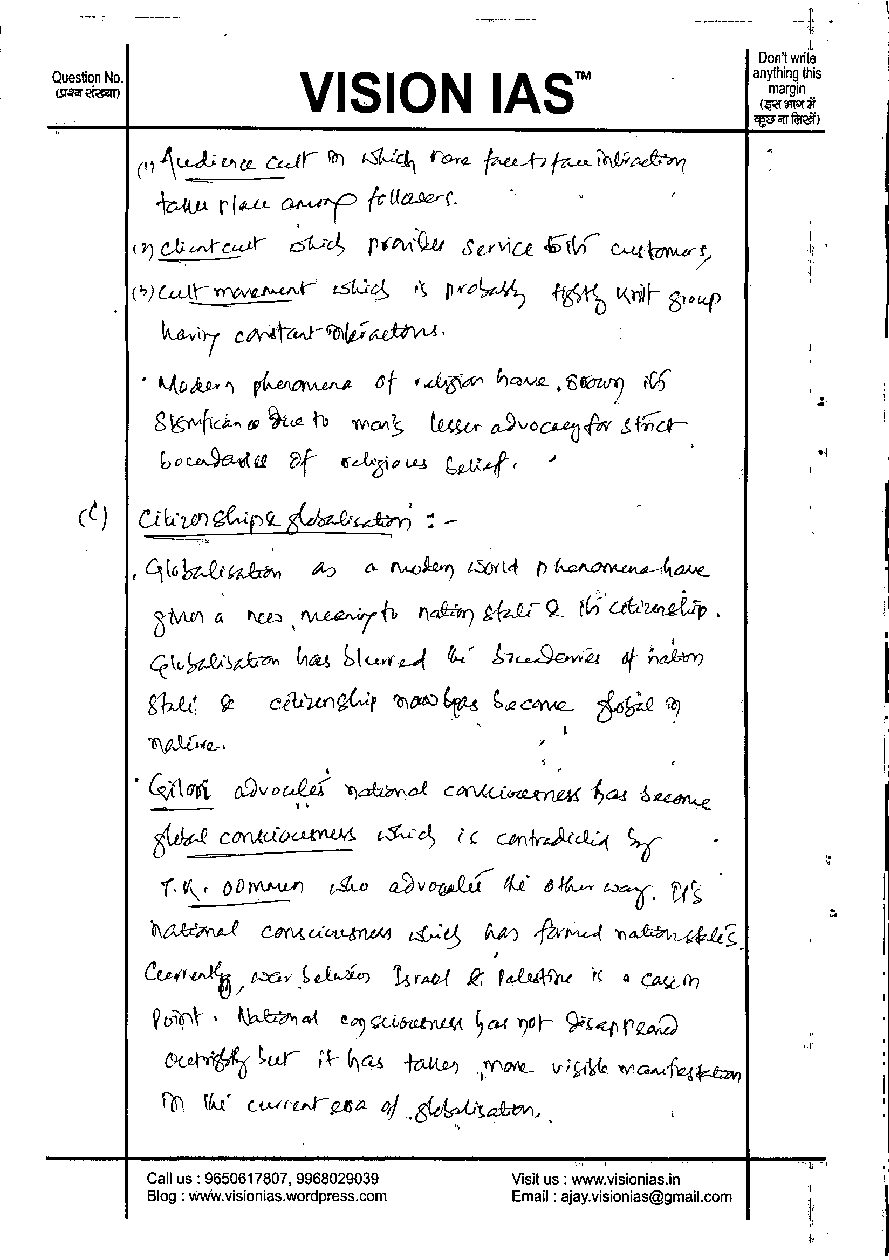 Question No.
(प्रश्न संख्या)
VISION IAS™
Don't write
anything this
margin
(इस भाग में
कुछ ना लिखें)
(1) Audience cult in which rare face to face interaction
takes place among followers.
(2) Client cult which provides service to its customers,
(3) Cult movement which is probably tightly knit group
having constant interactions.
• Modern phenomena of religion have shown its
significance due to man's lesser advocacy for strict
boundaries of religious belief.
(C) Citizenship & globalisation :-
• Globalisation as a modern world phenomena have
given a new meaning to nation state & its citizenship.
Globalisation has blurred the boundaries of nation
state & citizenship now has become global in
nature.
• advocates national consciousness has become
global consciousness which is contradicted by
T.K. Oommen who advocates the other way. It's
national consciousness which has formed nation states.
Currently, war between Israel & Palestine is a case in
point. National consciousness has not disappeared
outrightly but it has taken more visible manifestation
in the current era of globalisation.
Call us : 9650617807, 9968029039
Visit us : www.visionias.in
Blog : www.visionias.wordpress.com
Email : ajay.visionias@gmail.com